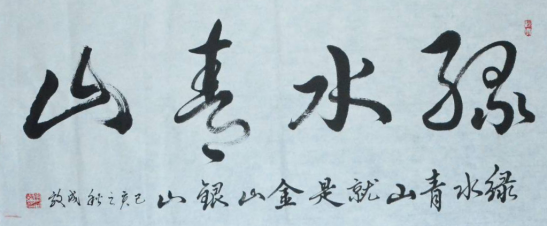 绿水青山
绿水青山就是金山银山
己亥之秋成敬